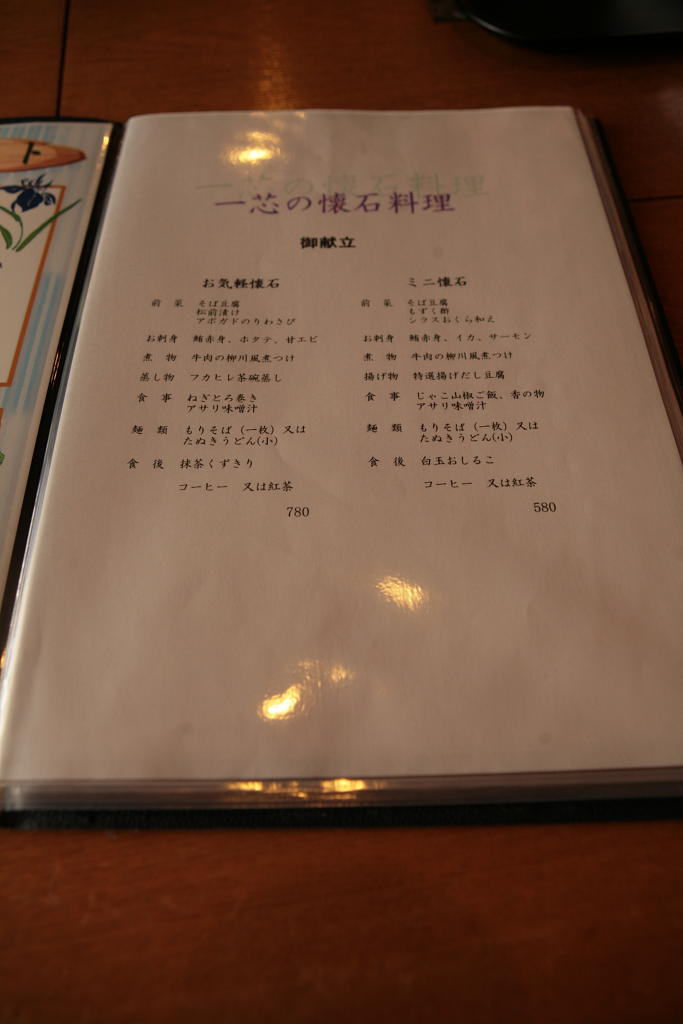 ト
一芯の懐石料理
御献立
お気軽懐石
前 菜 そば豆腐
松前漬け
アボガドのりわさび
お刺身 鮪赤身、ホタテ、甘エビ
煮 物 牛肉の柳川風煮つけ
蒸し物 フカヒレ茶碗蒸し
食 事 ねぎとろ巻き
アサリ味噌汁
麺 類 もりそば (一枚) 又は
たぬきうどん(小)
食 後 抹茶くずきり
コーヒー 又は紅茶
780
ミニ懐石
前 菜 そば豆腐
もずく酢
シラスおくら和え
お刺身 鮪赤身、イカ、サーモン
煮 物 牛肉の柳川風煮つけ
揚げ物 特選揚げだし豆腐
食 事 じゃこ山椒ご飯、香の物
アサリ味噌汁
麺 類 もりそば (一枚) 又は
たぬきうどん(小)
食 後 白玉おしるこ
コーヒー 又は紅茶
580